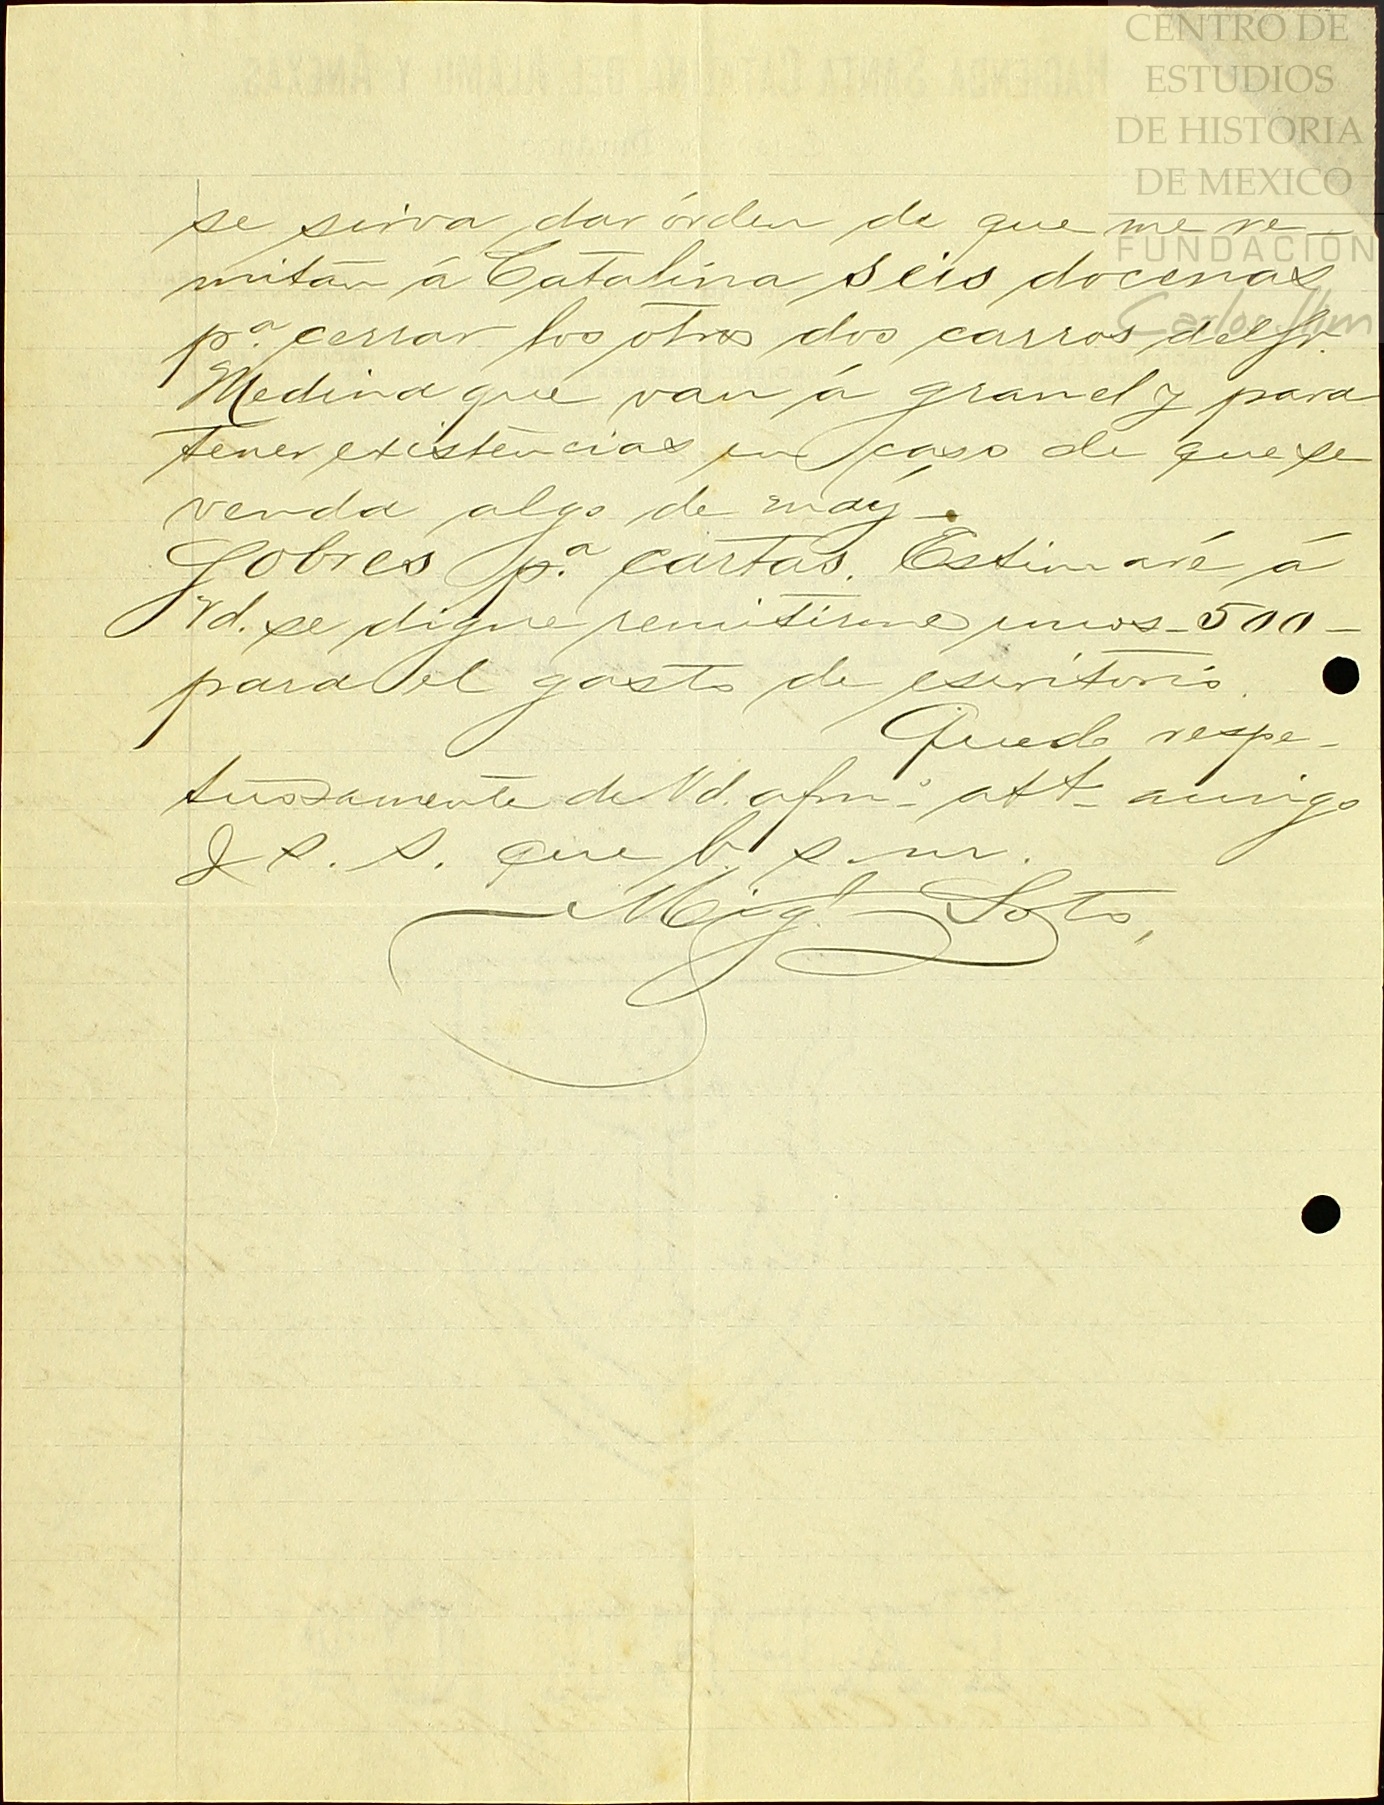 CENTRO DE
ESTUDIOS
DE HISTORIA
DE MEXICO
FUNDACIÓN
Carlos Slim
se sirva dar órden de que me re-
mitan á Catalina seis docenas
p.ª cerrar los otros dos carros del Sr.
Medina que van á granel y para
tener existencias en caso de que se
venda algo de may.
Sobres p.ª cartas. Estimaré á
Vd. se digne remitirme unos - 500 -
para el gasto de escritorio.
Quedo respe-
tuosamente de Vd. afmo. att. amigo
y s. s. que b. s. m.
Migl. Soto,